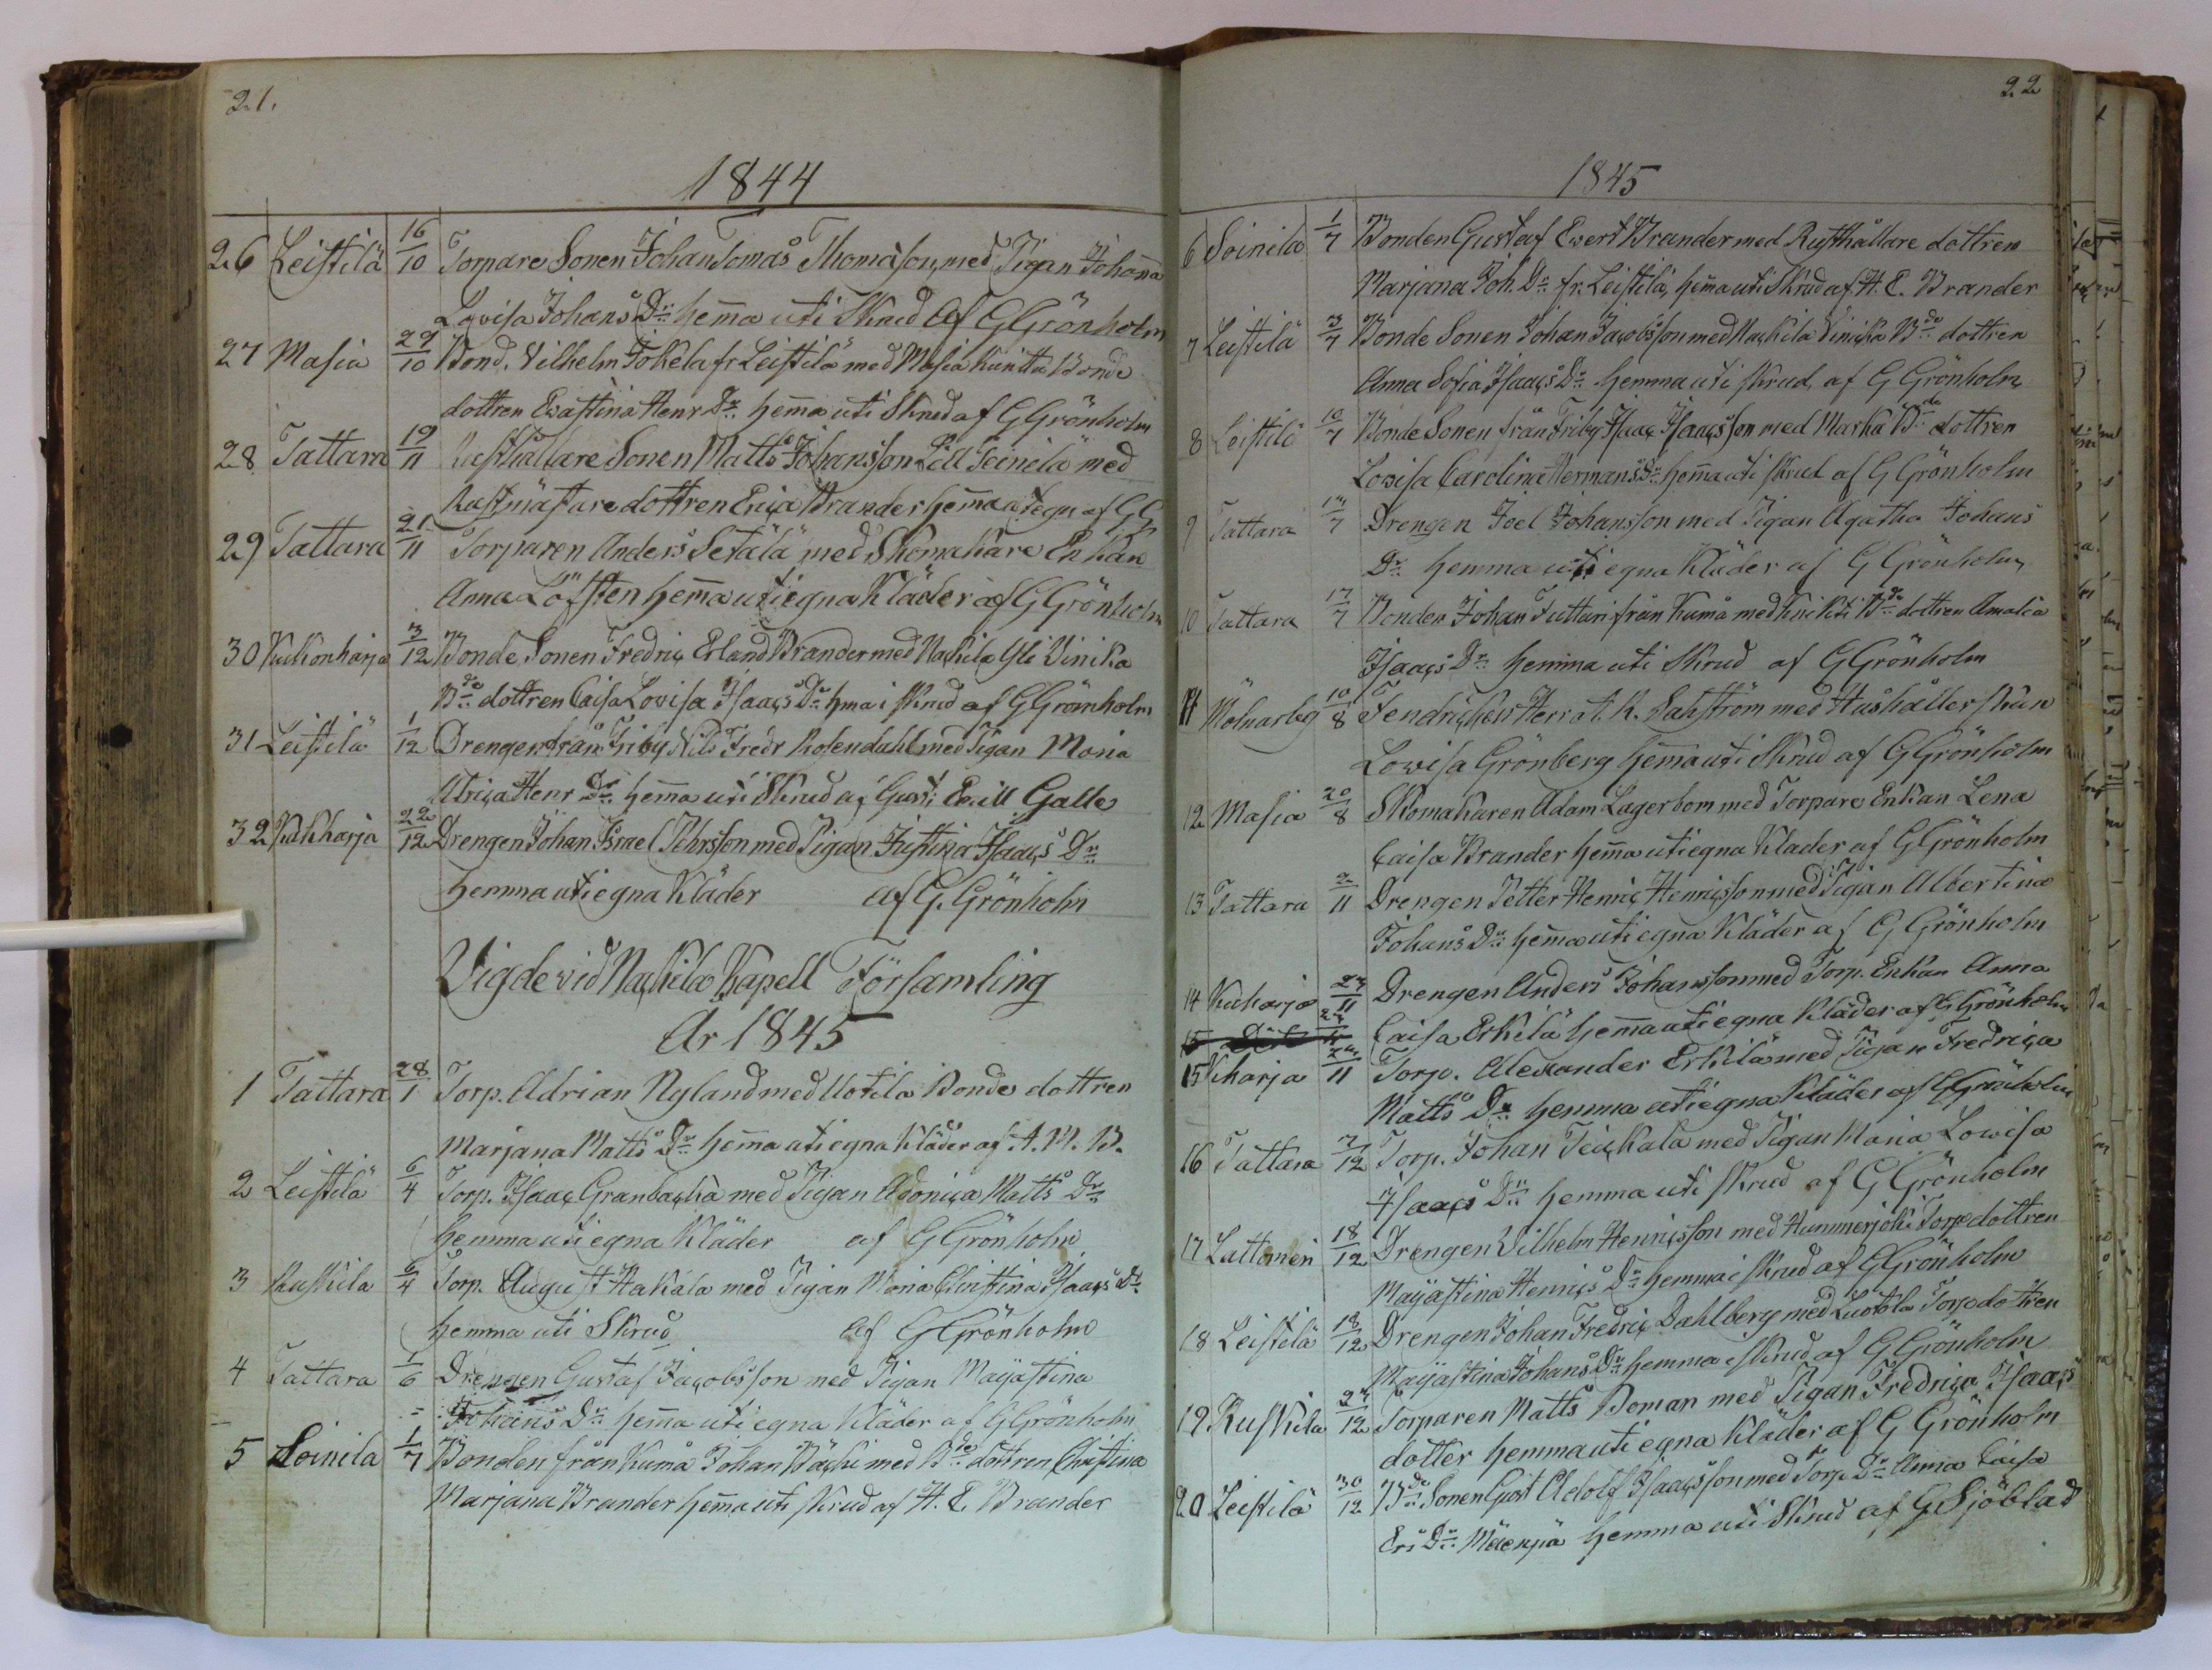 21.
1844
26 Leistilä 16/10 Torpare Sonen Johan Tomas Thomasson, med Pigan Johanna
Lovisa Johans Dr. hema uti Skrud af G Grönholm
27 Masia 29/10 Bond. Vilhelm Jokela fr Leistilä med Masia Bonde
dottren Evastina Henr Dr. hema uti Skrud af G Grönholm
28 Tattara 19/11 Rusthållare Sonen Matts Johansson med
Rustmästare dottren Erica Brander hema af G G
29 Tattara 21/11 Torparen Anders Setälä med Skomakare Enkan
Anna Löfsten hema uti egna Kläder af G Grönholm
30 Kukonharja 3/12 Bonde Sonen Fredric Erland Brander med Nackila Yli Vinika
Bde dottren Caisa Lovisa Isaacs Dr hma i skrud af G Grönholm
31 Leistilä 1/12 Drengen från Friby Nils Fredr Rosendahl med Pigan Maria
Ulrica Henr Dr. hema uti Skrud af Gust: Galle
32 Kukkharja 22/12 Drengen Johan Israel med Pigan Justina Isaacs Dr
hemma uti egna Kläder af G. Grönholm
Vigde vid Nackila Kapell Församling
År 1845
1 Tattara 28/1 Torp. Adrian Nyland med Uotila Bonde dottren
Marjana Matts Dr. hema uti egna Kläder af A. M. B.
2 Leistilä 6/4 Torp. Isaac Granbacka med Pigan Adonica Matts Dr
hemma uti egna Kläder af G Grönholm
3 Ruskila 6/4 Torp. August Hakala med Pigan Maria Christina Isaacs Dr
hemma uti Skrud af G Grönholm
4 Tattara 1/6 Drengen Gustaf Jacobsson med Pigan Majastina
Johans Dr hema uti egna Kläder af G Grönholm
5 Soinila 1/7 Bonden från Kumå Johan Bäcki med Bde dottren Christina
Marjana Brander hema uti skrud af H. E Brander
22
1845
6 Soinila 1/7 Bonden Gustaf Evert Brander med Rusthållare dottren
Marjana Joh. Dr fr. Leistilä, hema uti Skrud af H. E. Brander
7 Leistilä 3/7 Bonde Sonen Johan Jacobsson med Nackila Vinicka Bde dottren
Anna Sofia Isaacs Dr hemma uti skrud af G Grönholm
8 Leistilä 10/7 Bonde Sonen från Friby Isaac Isaacsson med Bde dottren
Lovisa Carolina Hermans Dr hema uti skrud af G Grönholm
9 Tattara /7 Drengen Joel Johansson med Pigan Agatha Johans
Dr hemma uti egna Kläder af G Grönholm
10 Tattara 17/7 Bonden Johan Tuttari från Kumå med Bde dottren Amalia
Isaacs Dr hemma uti Skrud af G Grönholm
11 10/8 Fendricken Herr med Hushållerskan
Lowisa Grönberg hema uti Skrud af G Grönholm
12 Masia 20/8 Skomakaren Adam Lagerbom med Torpare Enkan Lena
Caisa Brander hema uti egna Klader af G Grönholm
13 Tattara 2/11 Drengen Petter Henric Henricsson med Pigan Albertina
Johans Dr hema uti egna Kläder af G Grönholm
14 Kuharja 27/11 Drengen Anders Johansson med Torp. Enkan Anna
Caisa Erkilä hema uti egna Kläder af G Grönholm
15 Kharja /11 Torp. Alexander Erkilä med Pigan Fredrica
Matts Dr hemma uti egna Kläder af G Grönholm
16 Tattara 7/12 Torp. Johan med Pigan Maria Lowisa
Isaacs Dr hemma uti skrud af G Grönholm
17 Lattomeri 18/12 Drengen Vilhelm Henricsson med Hummerjoki Torp dottren
Majastina Henrics Dr hemma i skrud af G Grönholm
18 Leistilä 18/12 Drengen Johan Fredric Dahlberg med Torp dottren
Majastina Johans Dr hemma i skrud af G Grönholm
19 Ruskila 27/12 Torparen Matts Boman med Pigan Fredrica Isaacs
dotter hemma uti egna Kläder af G Grönholm
20 Leistilä 30/12 Bde Sonen Gust Adolf Isaacsson med Torp Dr Anna Caisa
Ers Dr. Mäenpä hemma uti Skrud af G Sjöblad